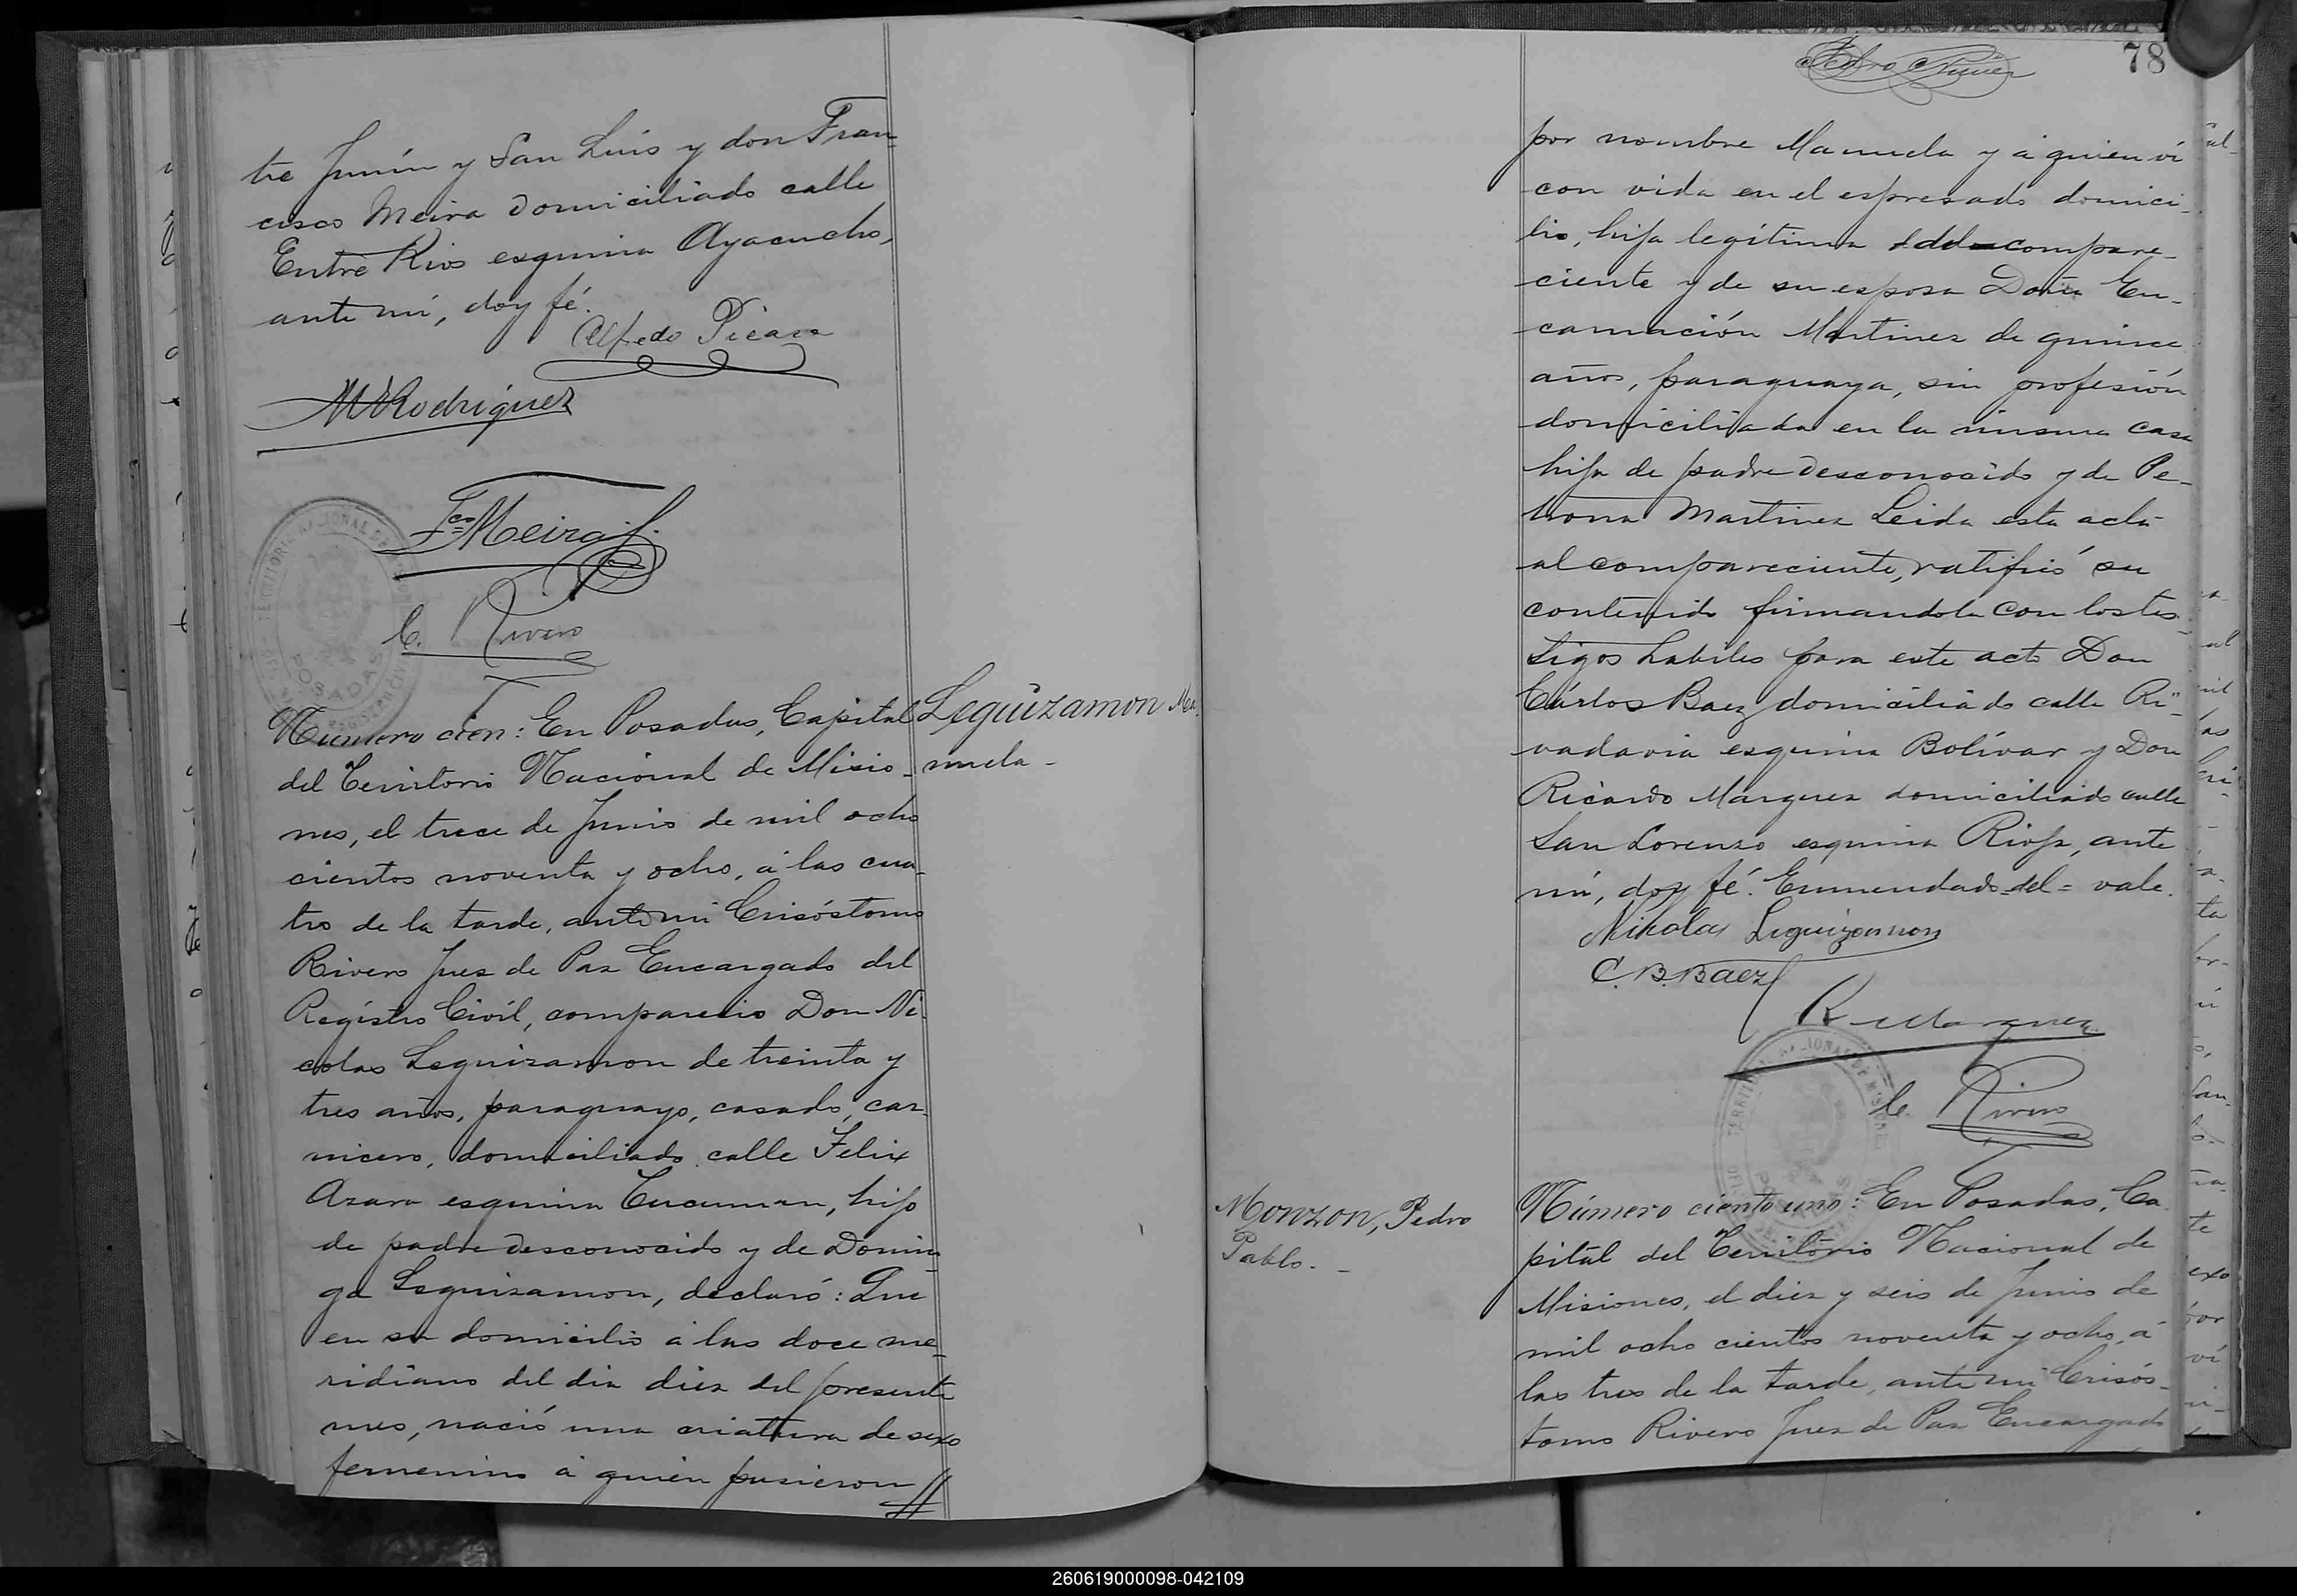 tre Junín y San Luis y don Fran-
cisco Meira domiciliado calle
Entre Rios esquina Ayacucho,
ante mí, doy fé.
Alfredo Picasa
M Rodriguez
Fco Meira
C. Rivero
POSADAS
Número cien: En Posadas, Capital
del Territorio Nacional de Misio-
nes, el trece de Junio de mil ocho
cientos noventa y ocho, á las cua-
tro de la tarde, ante mí Crisóstomo
Rivero Juez de Paz Encargado del
Registro Civil, comparecio Don Ni-
colas Leguizamon de treinta y
tres años, paraguayo, casado, car-
nicero, domiciliado calle Felix
Azara esquina Tucuman, hijo
de padre desconocido y de Domin-
ga Leguizamon, declaró: Que
en su domicilio á las doce me-
ridiano del dia diez del presente
mes, nació una criattura de sexo
femenino á quien pusieron //
Leguizamon Ma-
nuela -
Pedro Nuñez
78
por nombre Manuela y á quien ví
con vida en el espresado domici-
lio, hija legítima del compare-
ciente y de su esposa Doña En-
carnación Martinez de quince
años, paraguaya, sin profesión
domiciliada en la misma casa
hija de padre desconocido y de Pe-
trona Martinez Leida esta acta
al compareciente, ratificó su
contenido firmandola con los tes-
tigos habiles para este acto Don
Cárlos Baez domiciliado calle Ri-
vadavia esquina Bolívar y Don
Ricardo Marquez domiciliado calle
San Lorenzo esquina Rioja, ante
mí, doy fé. Enmendado=del=vale.
Nikolas Leguizamon
C. B. Baez
R Marquez
C. Rivero
Monzon, Pedro
Pablo. -
Número ciento uno: En Posadas, Ca-
pital del Territorio Nacional de
Misiones, el diez y seis de Junio de
mil ocho cientos noventa y ocho, á
las tres de la tarde, ante mí Crisós-
tomo Rivero Juez de Paz Encargado
260619000098-042109